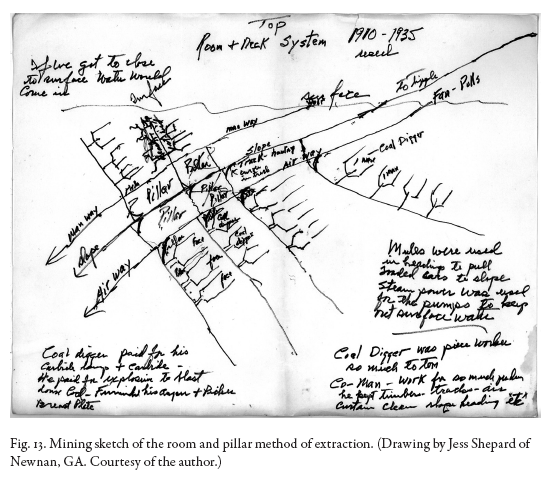 Top
Room + Neck System
1910-1935
used
If we got to close
to surface water would
Come in
Surface
Surface
To Tipple
Fan - Pulls
man way
Slope
Track hauling
Air way
Coal Digger
1 man
1 man
Pillar
Pillar
Pillar
Pillar
Man way
Slope
Air way
Coal
digger
Coal
digger
face
face
Mules were used
in headings to pull
loaded cars to slope
Steam power was used
for the pumps to keep
out surface water
Coal digger paid for his
Carbide lamp + Carbide -
He paid for explosion to blast
down Coal - Furnished his auger + Picks
Breast Plate
Coal Digger was piece worker
so much to ton
Co-Man - Work for so much
he kept timbers tracks - air
Curtain clean slope heading "etc"
Fig. 13. Mining sketch of the room and pillar method of extraction. (Drawing by Jess Shepard of
Newnan, GA. Courtesy of the author.)